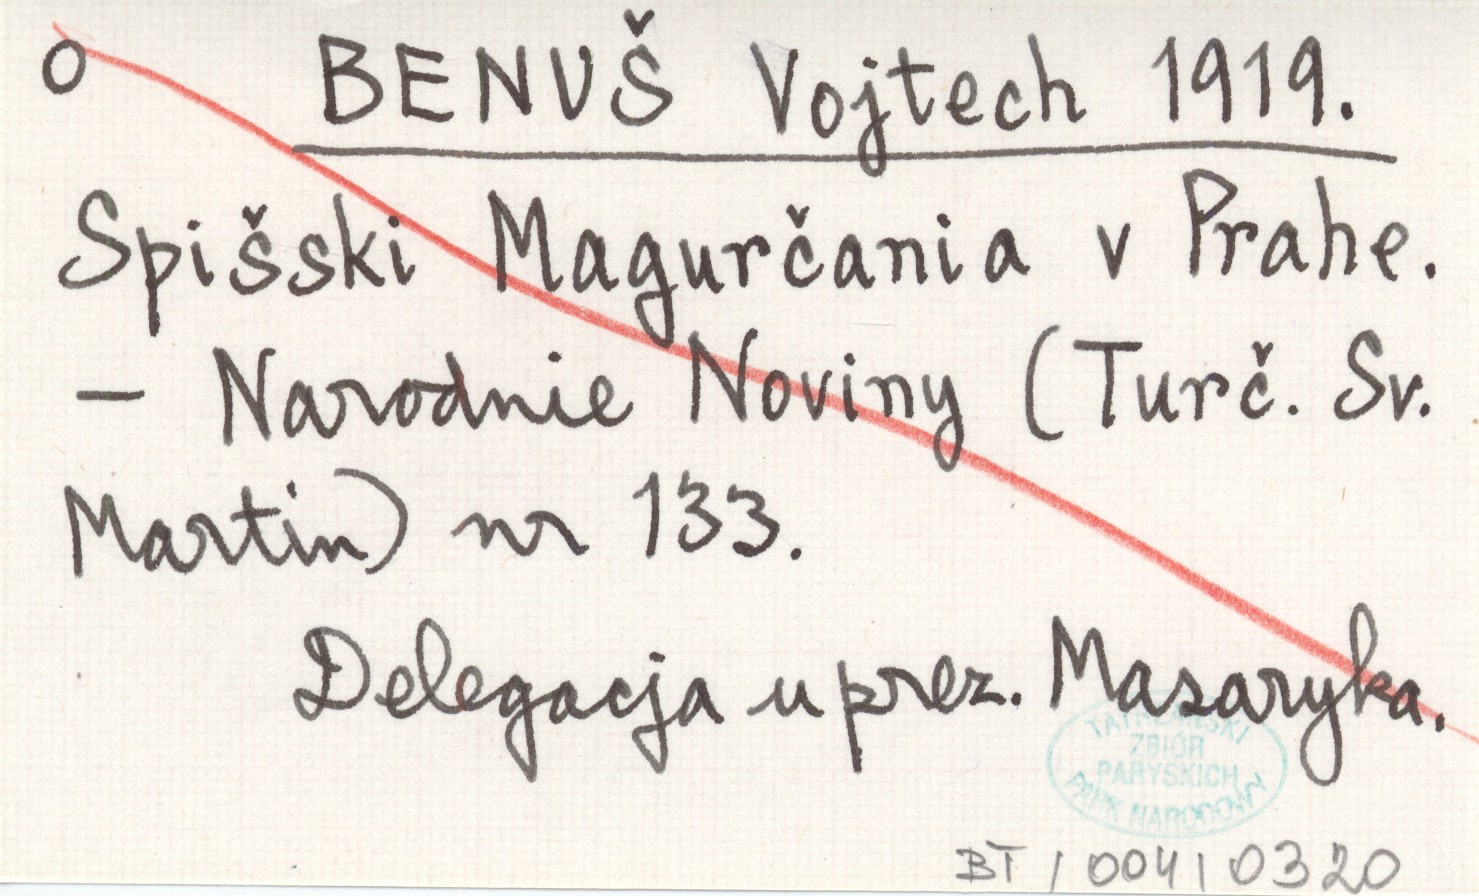 o BENUŠ Vojtech 1919.
Spišski Magurčania v Prahe.
– Narodnie Noviny (Turč. Sv.
Martin) nr 133.
Delegacja u prez. Masaryka.
TATRZAŃSKI
ZBIÓR
PARYSKICH
PARK NARODOWY
BT / 004 / 0320